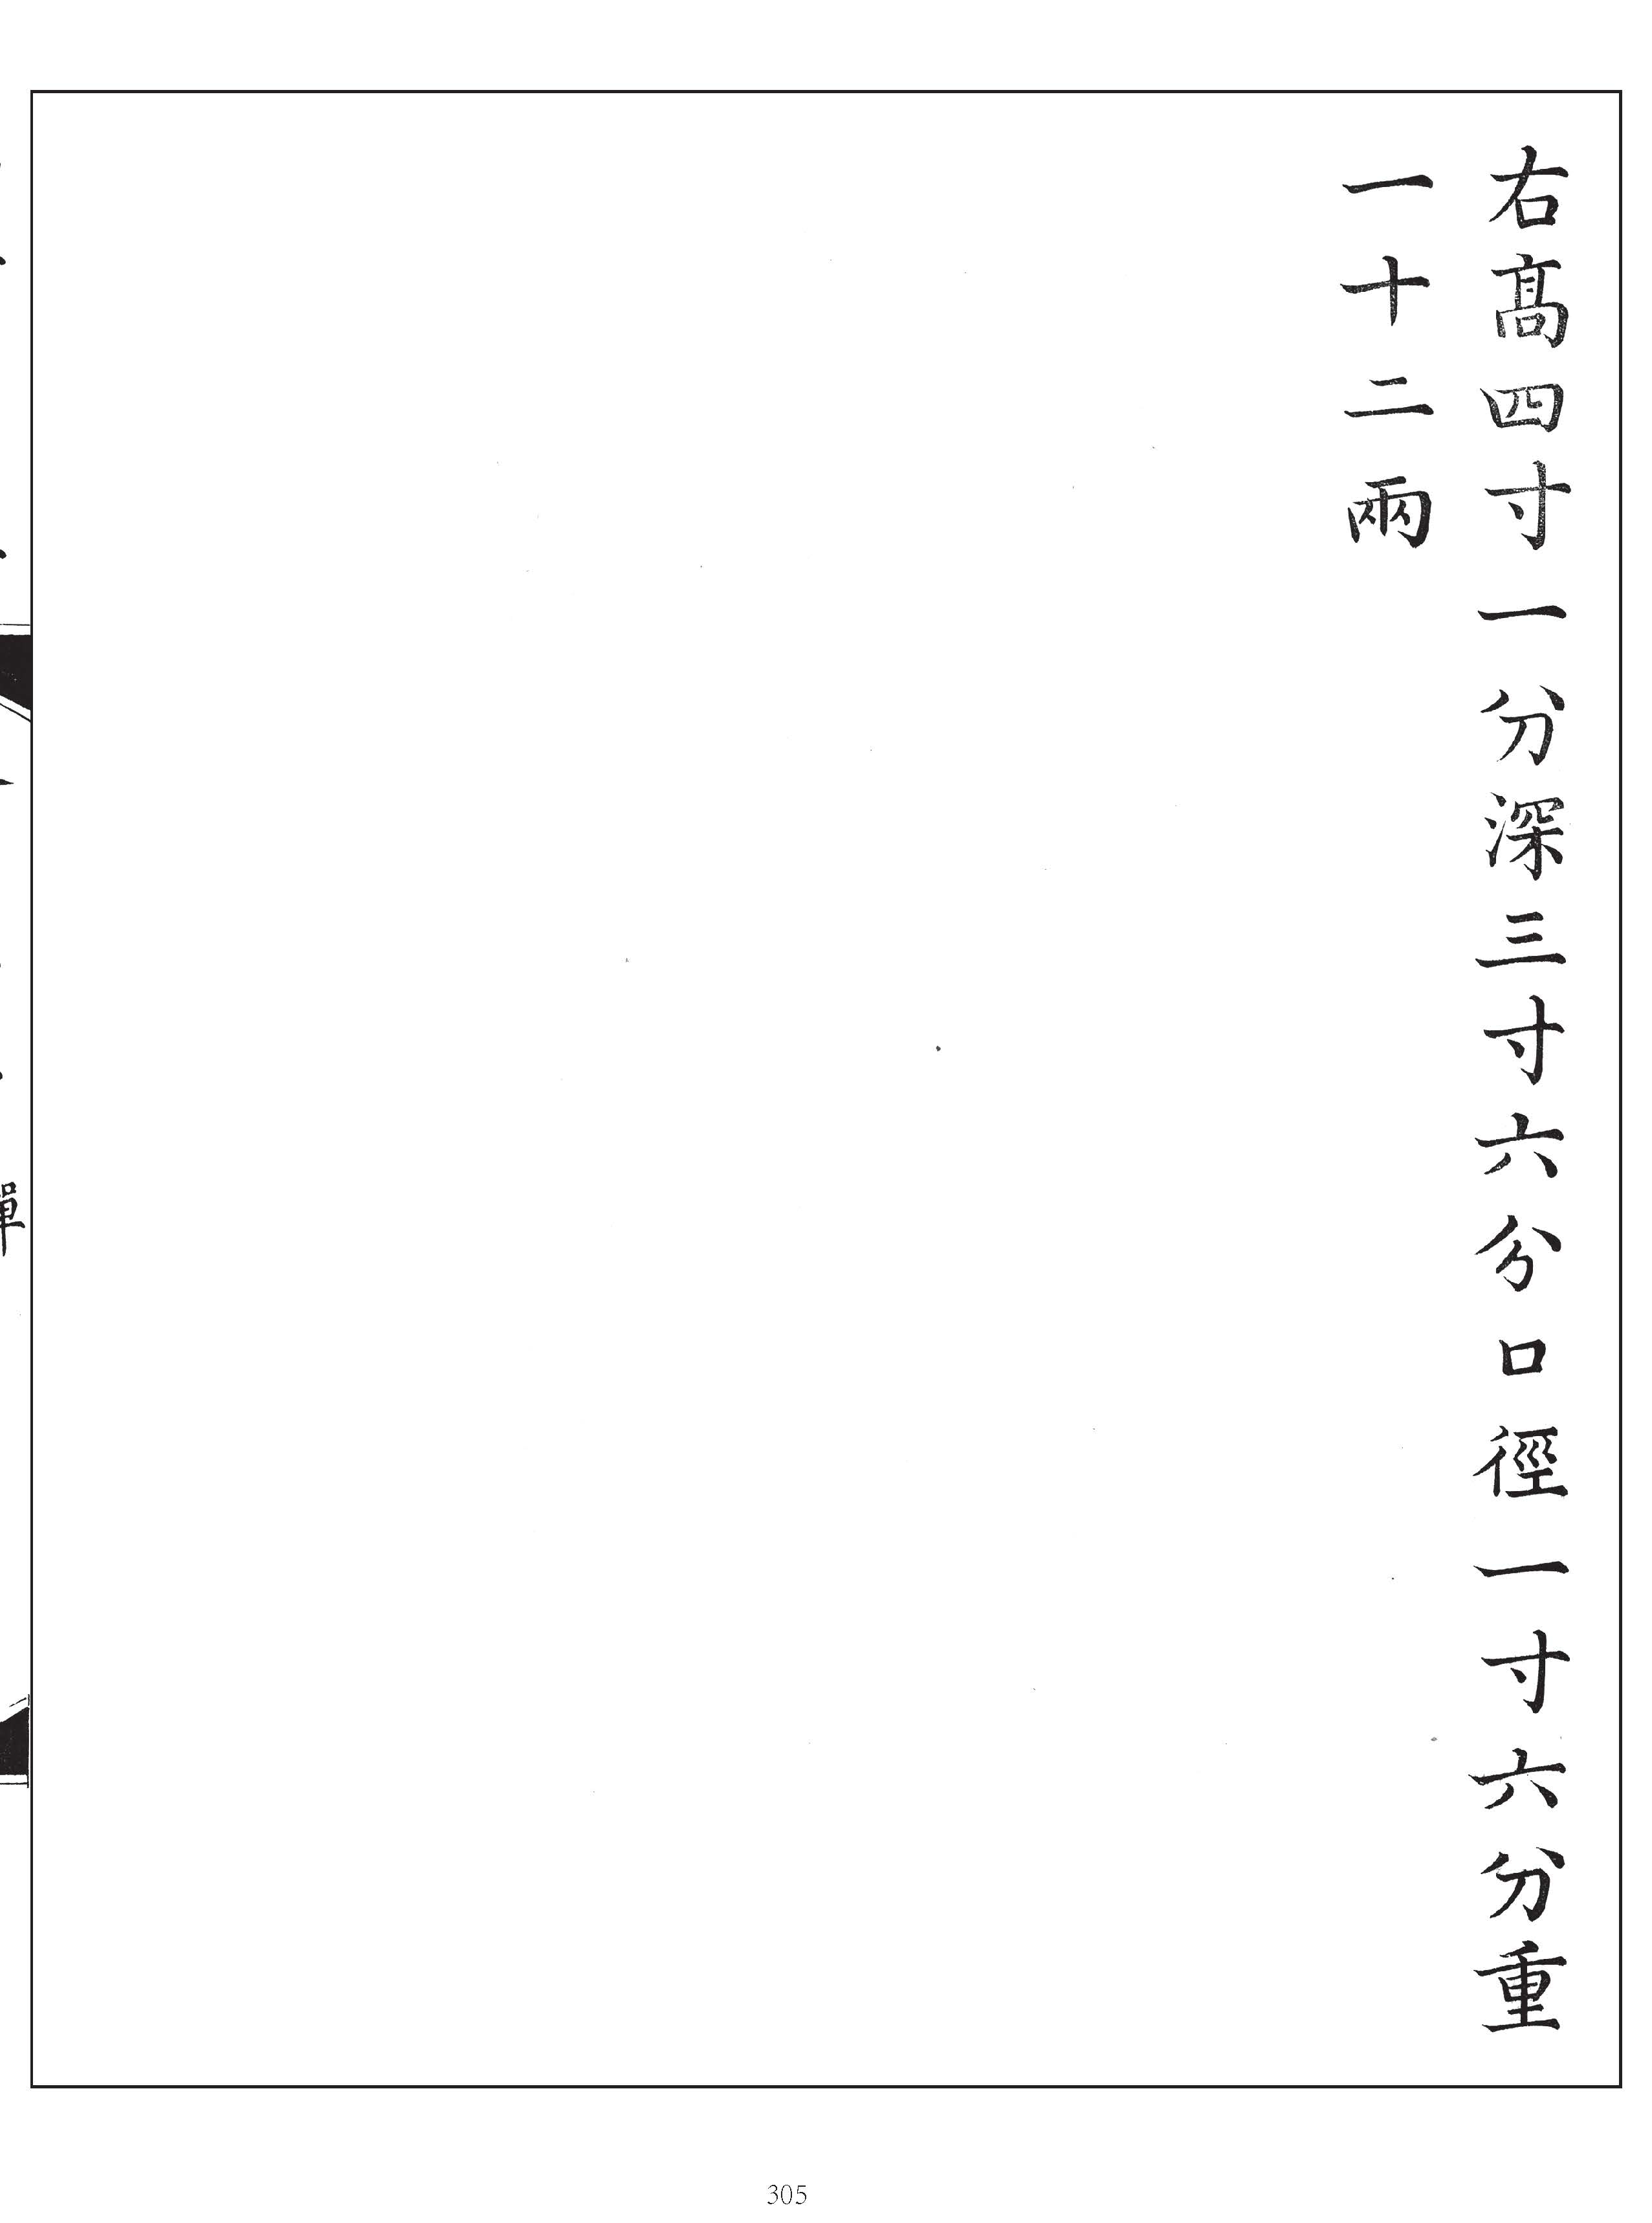 右髙四寸一分深三寸六分口徑一寸六分重
一十二兩
305